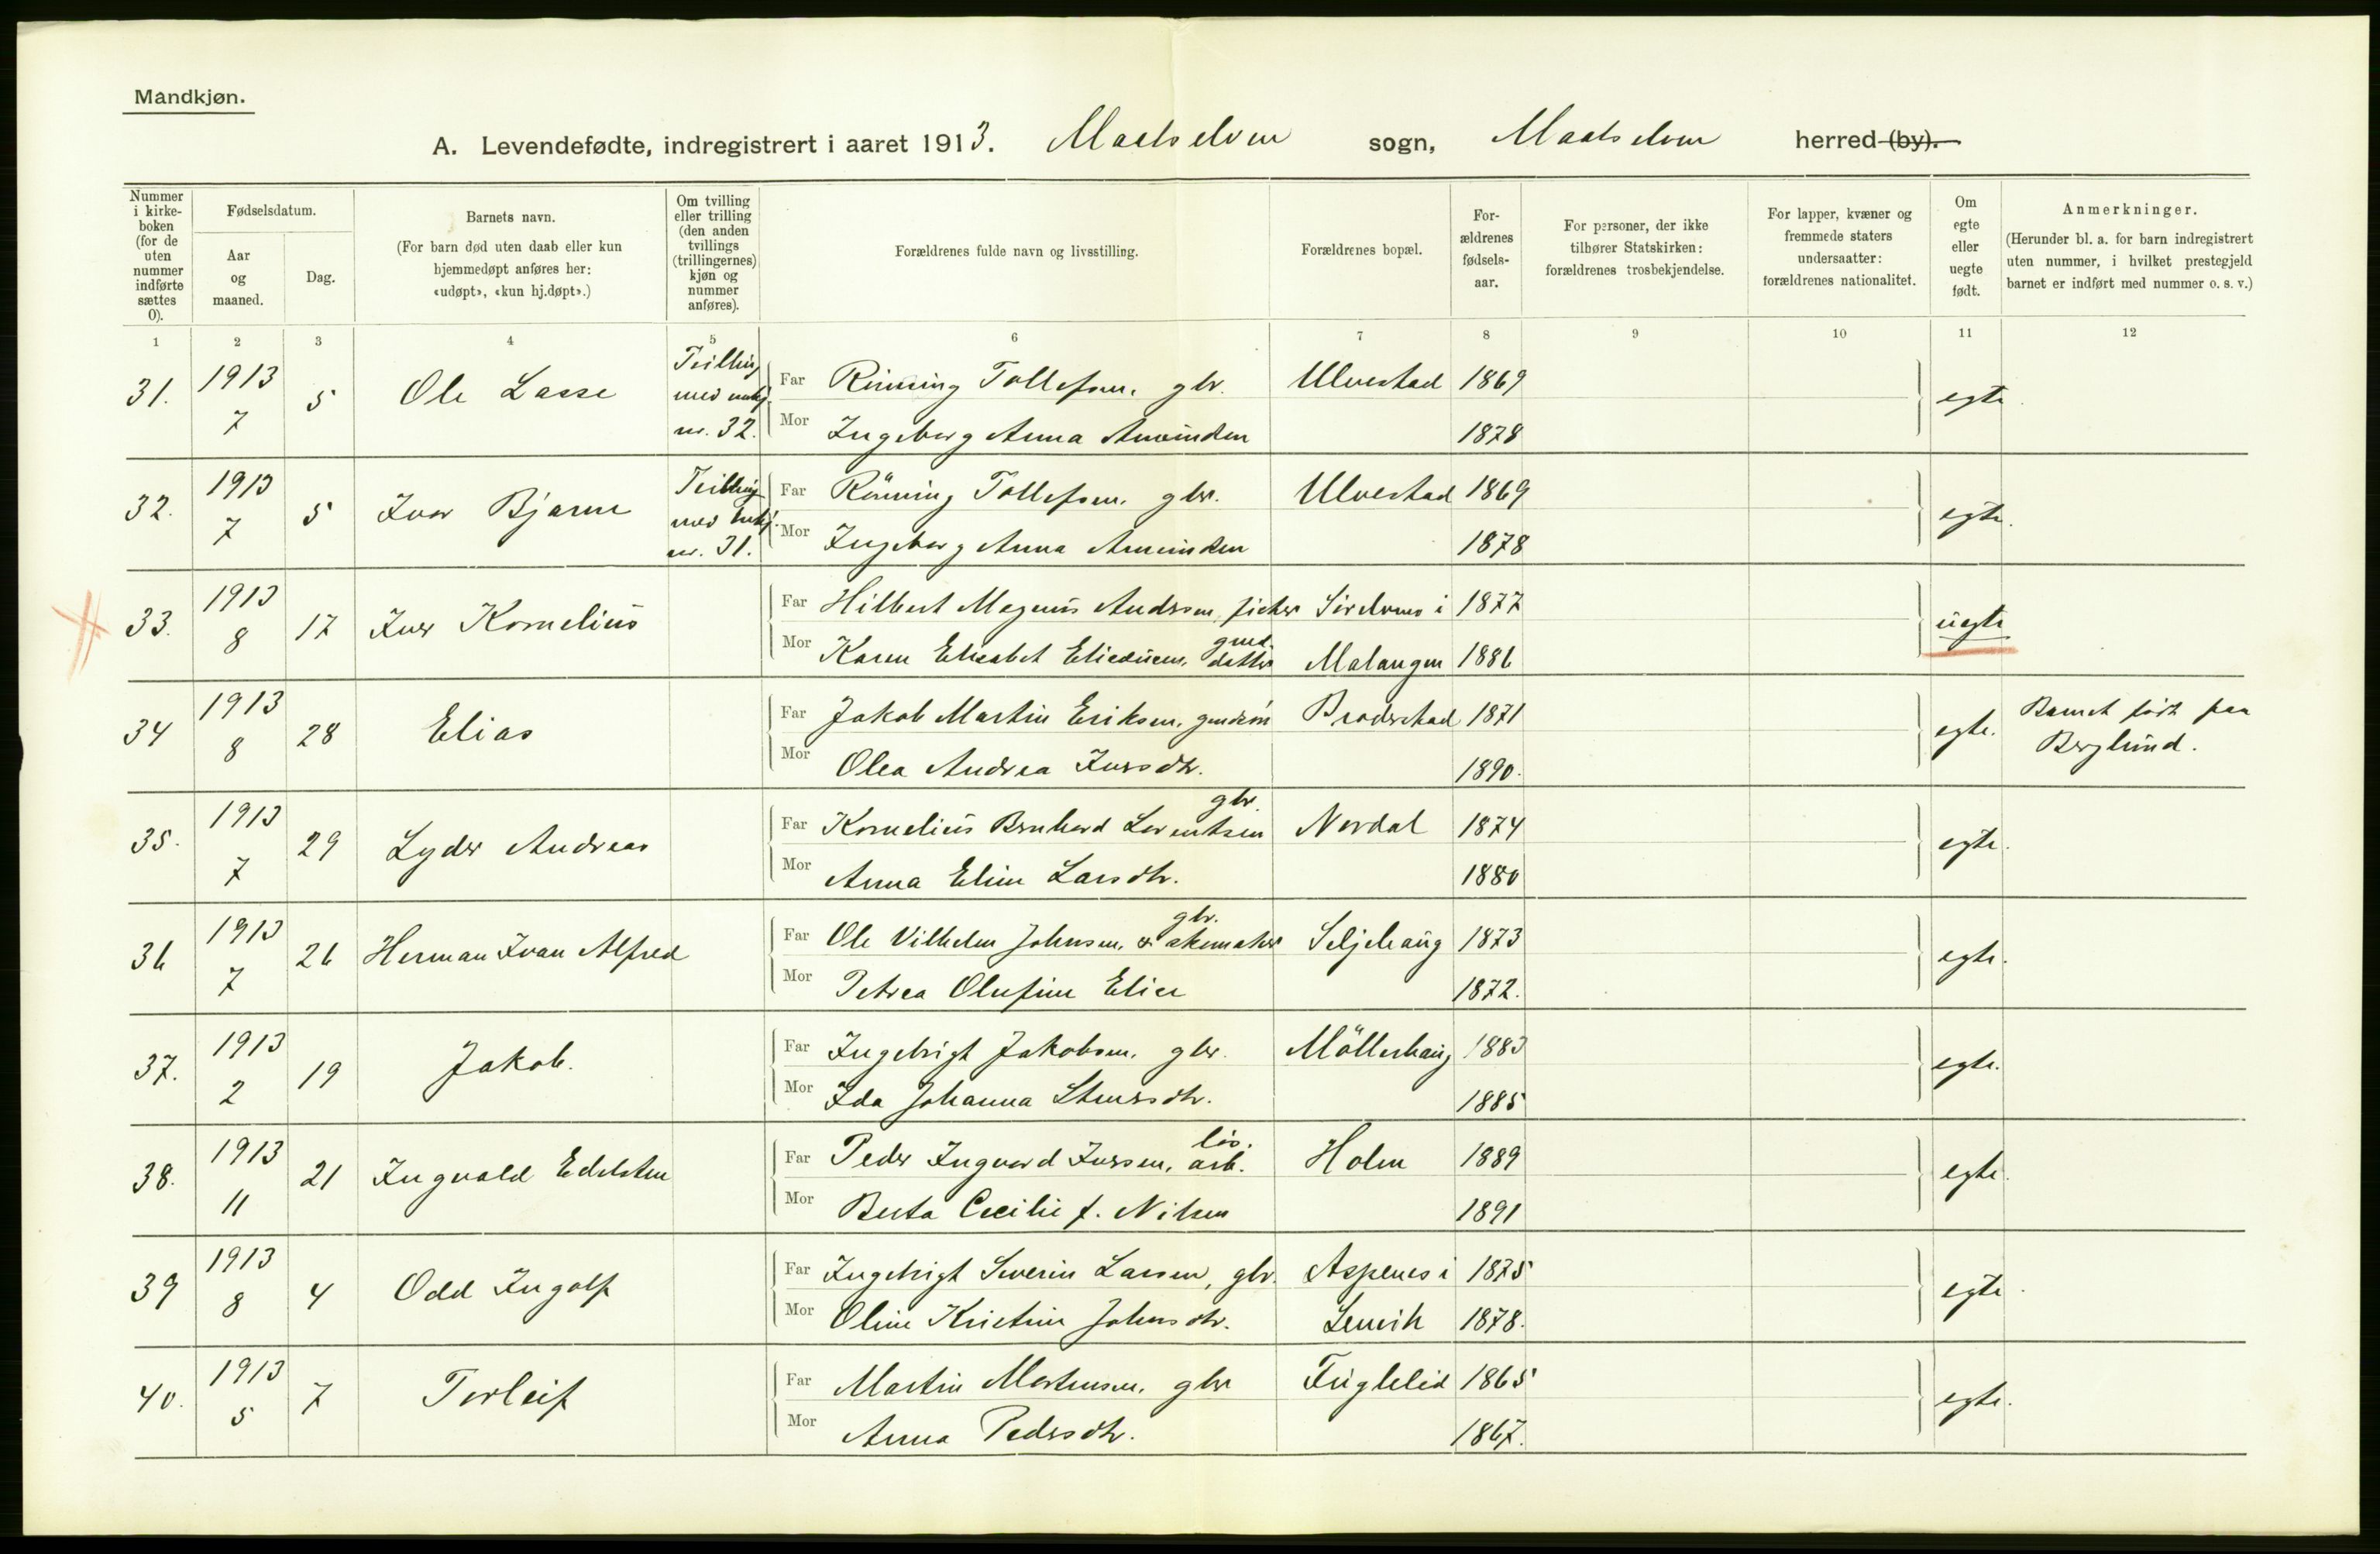 Mandkjøn.
A. Levendefødte, indregistrert i aaret 1913. Maalselven sogn, Maalselven herred (by).
Nummer i kirke-boken (for de uten nummer indførte sættes 0).
Fødselsdatum.
Aar og maaned.
Dag.
Barnets navn.
(For barn død uten daab eller kun hjemmedøpt anføres her: «udøpt», «kun hj.døpt».)
Om tvilling eller trilling (den anden tvillings (trillingernes) kjøn og nummer anføres).
Forældrenes fulde navn og livsstilling.
Forældrenes bopæl.
For-ældrenes fødsels-aar.
For personer, der ikke tilhører Statskirken: forældrenes trosbekjendelse.
For lapper, kvæner og fremmede staters undersaatter: forældrenes nationalitet.
Om egte eller uegte født.
Anmerkninger.
(Herunder bl. a. for barn indregistrert uten nummer, i hvilket prestegjeld barnet er indført med nummer o. s. v.)
1 2 3 4 5 6 7 8 9 10 11 12
31. 1913 7 5 Ole Lasse Tvilling med mkj. nr. 32. Far Rönning Tollefsen, gbr. Ulvestad 1869 egte.
Mor Ingeborg Anna Amundsen 1878
32. 1913 7 5 Ivar Bjarne Tvilling med mkj. nr. 31. Far Rönning Tollefsen, gbr. Ulvestad 1869 egte.
Mor Ingeborg Anna Amundsen 1878
33. 1913 8 17 Iver Kornelius Far Hilbert Magnus Andersen, fisker i 1877 uegte
Mor Karen Elisabet gmd. datter Malangen 1886
34 1913 8 28 Elias Far Jakob Martin Eriksen, gmdsön Broderstad 1871 egte. Barnet födt paa Berglund.
Mor Olea Andrea Iversdtr. 1890.
35. 1913 7 29 Lyder Andreas Far Kornelius Bernhard Lorentsen gbr. Nordal 1874 egte.
Mor Anna Eline Larsdtr. 1880
36 1913 7 26 Herman Ivan Alfred Far Ole Vilhelm Johnsen, gbr. & skomaker Seljehaug 1873 egte.
Mor Petrea Olufine Elise 1872.
37. 1913 2 19 Jakob. Far Ingebrigt Jakobsen, gbr. Möllerhaug 1883 egte.
Mor Ida Johanna 1885
38. 1913 11 21 Ingvald Edelsten Far Peder Ingvard Iversen, lös. arb. Holm 1889 egte.
Mor Berta Cecilie f. Nilsen 1891
39 1913 8 4 Odd Ingolf Far Ingebrigt Severin Larsen, gbr. Aspenes i 1875 egte.
Mor Oline Kristine Johnsdtr. Lenvik 1878.
40. 1913 5 7 Torleif Far Martin Mortensen, gbr Fuglelid 1865 egte.
Mor Anna Pedersdtr. 1867.